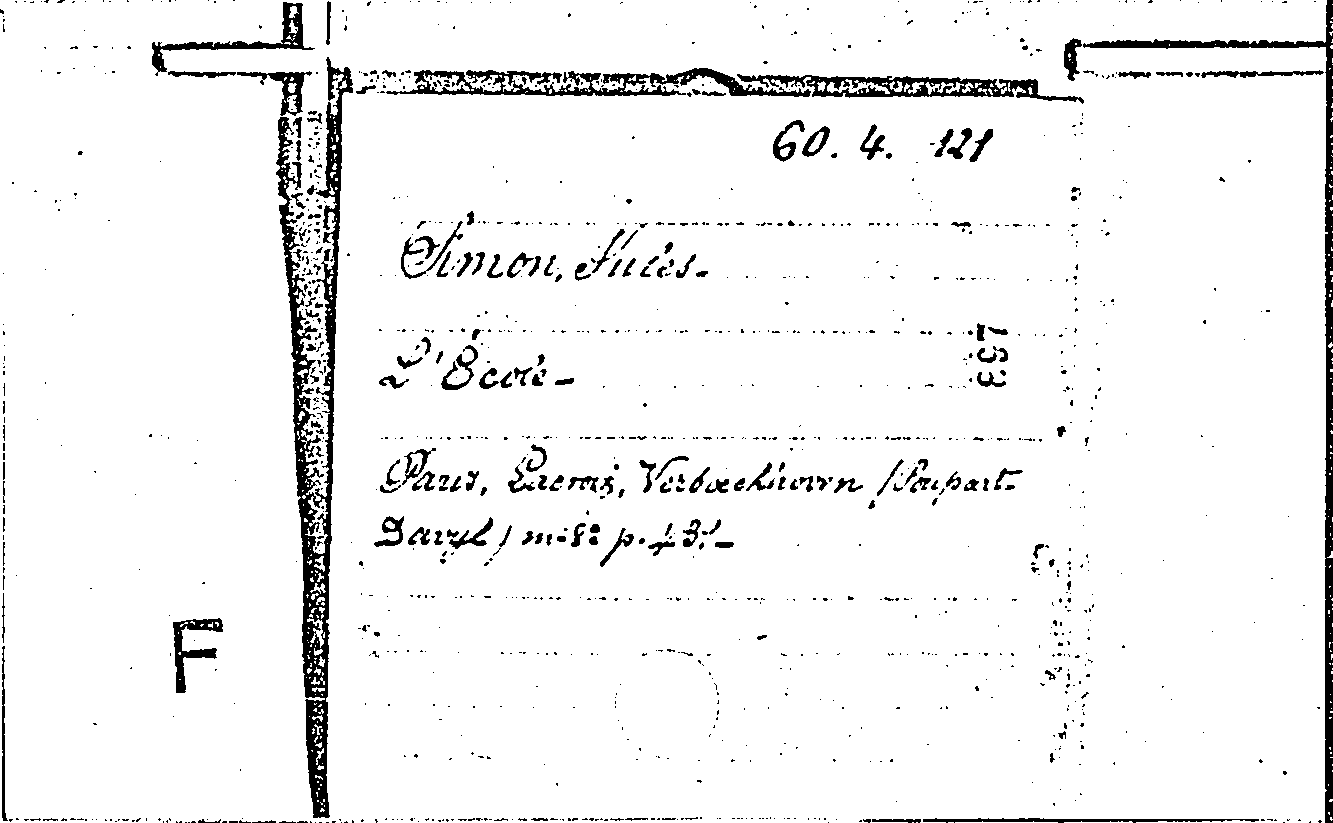 60. 4. 121
Simon, Jules.
L'École -
793
Paris, Lacroix, Verboeckhoven (Poupart-
Davyl) in-8º p. 43.-
F